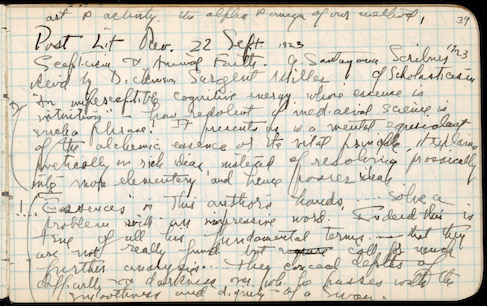 art & activity. the alpha & omega of our method, 39
Post Lit Rev. 22 Sept. 1923
Scepticism & Animal Faith. G Santayana Scribners '23
Rev'd by Dickinson Sargent Miller of Scholasticism
"An imperceptible cognitive energy whose essence is
intuition - how redolent of mediaeval science is
such a phrase. It presents us w a mental equivalent
of the alchemic essence or its vital principle,
poetically in rich ideas instead of resolving prosaically
into more elementary and hence poorer ideas
!... Essences in this author's hands .... solve a
problem with an impressive word. Indeed this is
true of all his fundamental terms — that they
are not really final but call for much
further analysis... They conceal depths of
difficulty & darkness over which he passes with the
smoothness and dignity of a swan.